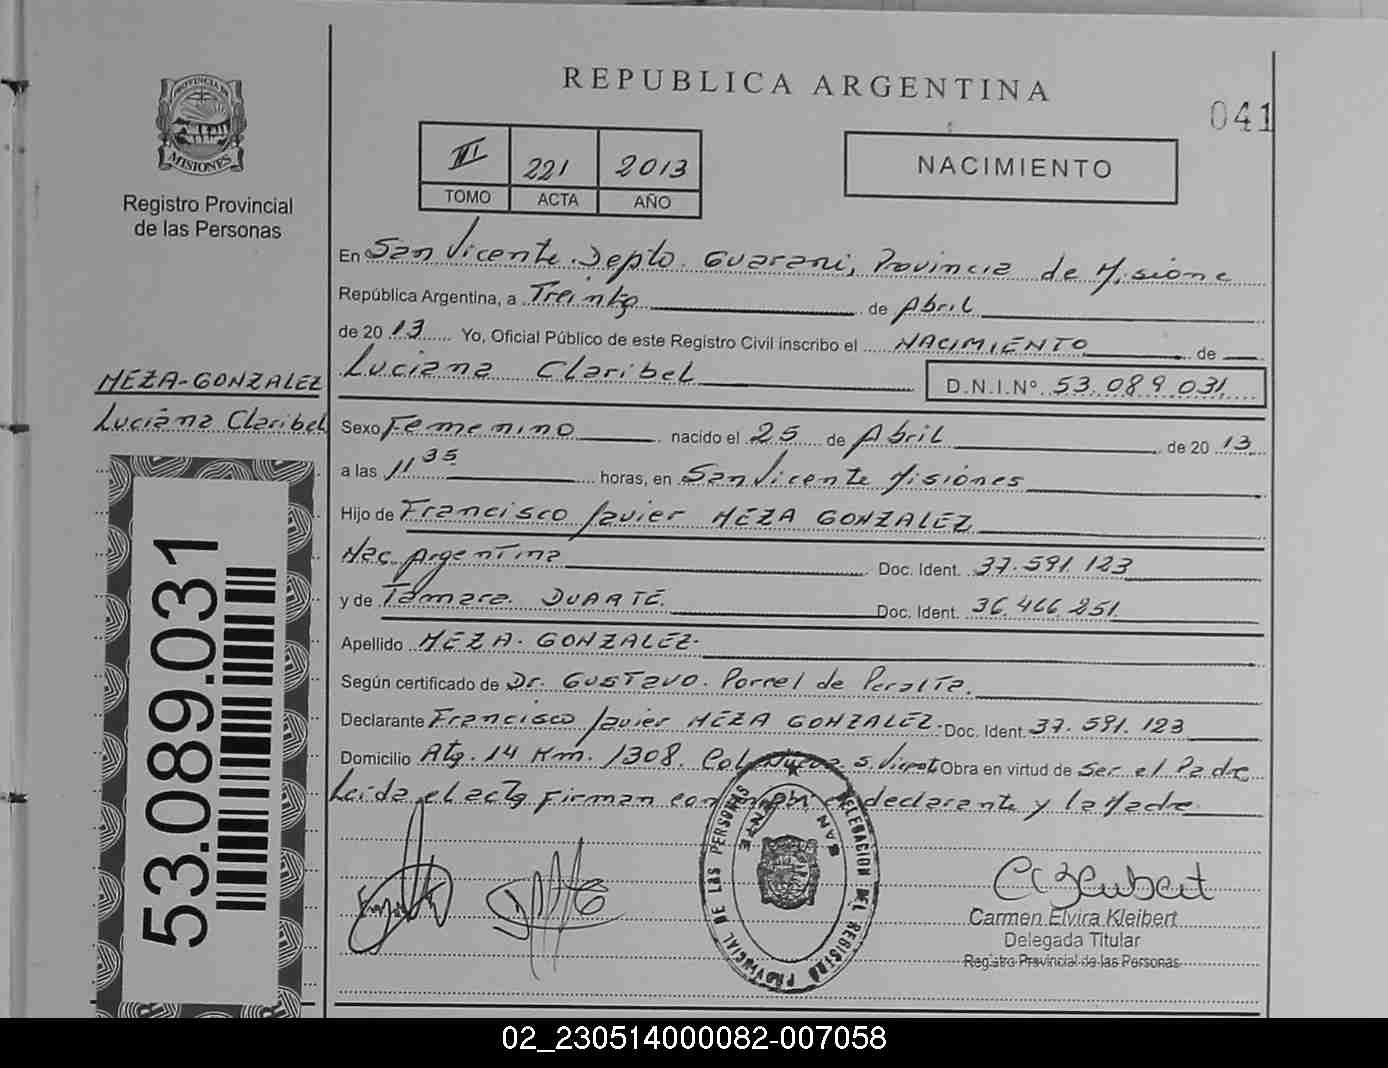 REPUBLICA ARGENTINA
041
PROVINCIA DE
MISIONES
Registro Provincial
de las Personas
III 221 2013
TOMO ACTA AÑO
NACIMIENTO
En San Vicente Depto. Guarani, Provincia de Misione
República Argentina, a Treinta de Abril
de 2013 Yo, Oficial Público de este Registro Civil inscribo el NACIMIENTO de
Luciana Claribel D.N.I.Nº 53.089.031
MEZA-GONZALEZ
Luciana Claribel
Sexo Femenino nacido el 25 de Abril de 2013
a las 11 35 horas, en San Vicente Misiones
Hijo de Francisco Javier MEZA GONZALEZ
Nac. Argentina Doc. Ident. 37.591.123
y de Tamara DUARTE. Doc. Ident. 36.466.251
Apellido MEZA-GONZALEZ
Según certificado de Dr. GUSTAVO. Porrel de Peralta.
Declarante Francisco Javier MEZA GONZALEZ. Doc. Ident. 37.591.123
Domicilio Ata. 14 Km. 1308. Col. Nueva S. Vicet Obra en virtud de Ser el Padre
Leida el acta Firman conmigo el declarante y la Madre
53.089.031
DELEGACION DEL REGISTRO PROVINCIAL DE LAS PERSONAS
SAN VICENTE
Carmen Elvira Kleibert
Delegada Titular
Registro Provincial de las Personas
02_230514000082-007058